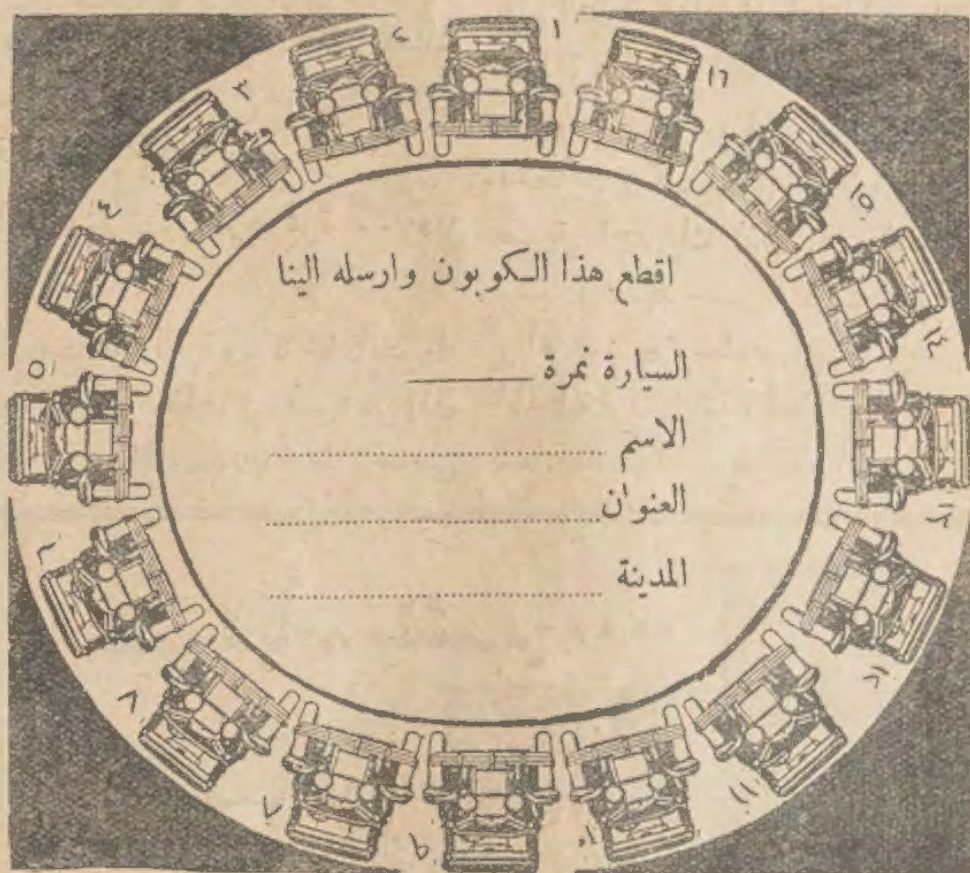 ١
٢
٣
٤
٥
٦
٨
٩
١٠
١١
١٢
١٤
١٥
١٦
اقطع هذا الكوبون وارسله الينا
السيارة نمرة ______
الاسم ..............................
العنوان ..............................
المدينة ..............................